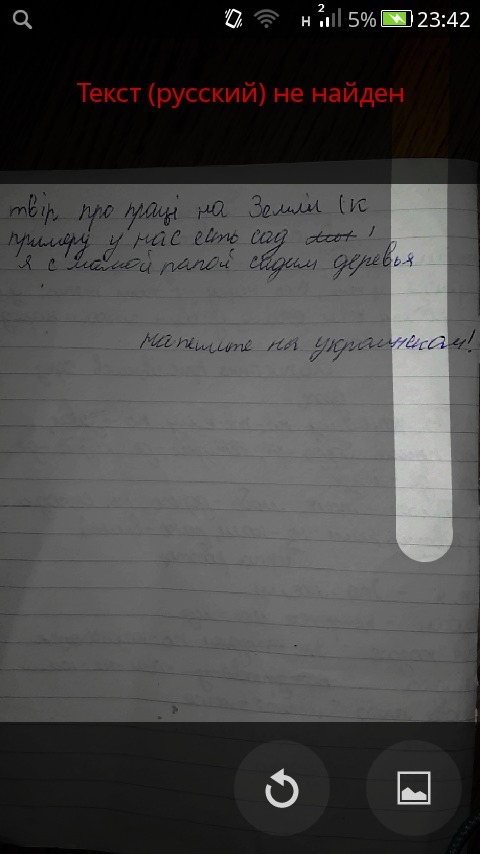 H 2 5% 23:42
Текст (русский) не найден
твір про праці на Землі (к
примеру у нас есть сад
я с мамой папой садим деревья
напешите на украинском!